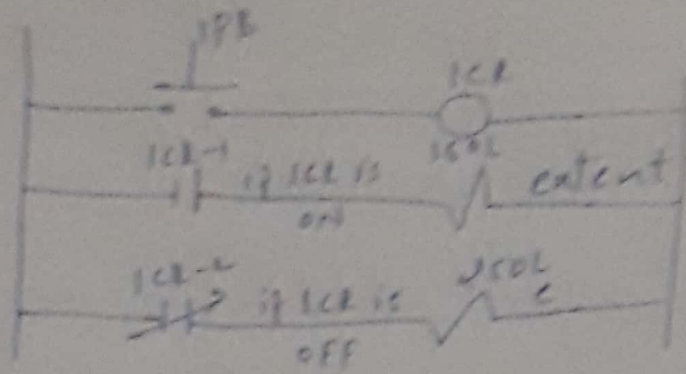 1PB
1CR
1CR-1 if 1CR is ON 1SOL extent
1CR-2 if 1CR is OFF 2SOL